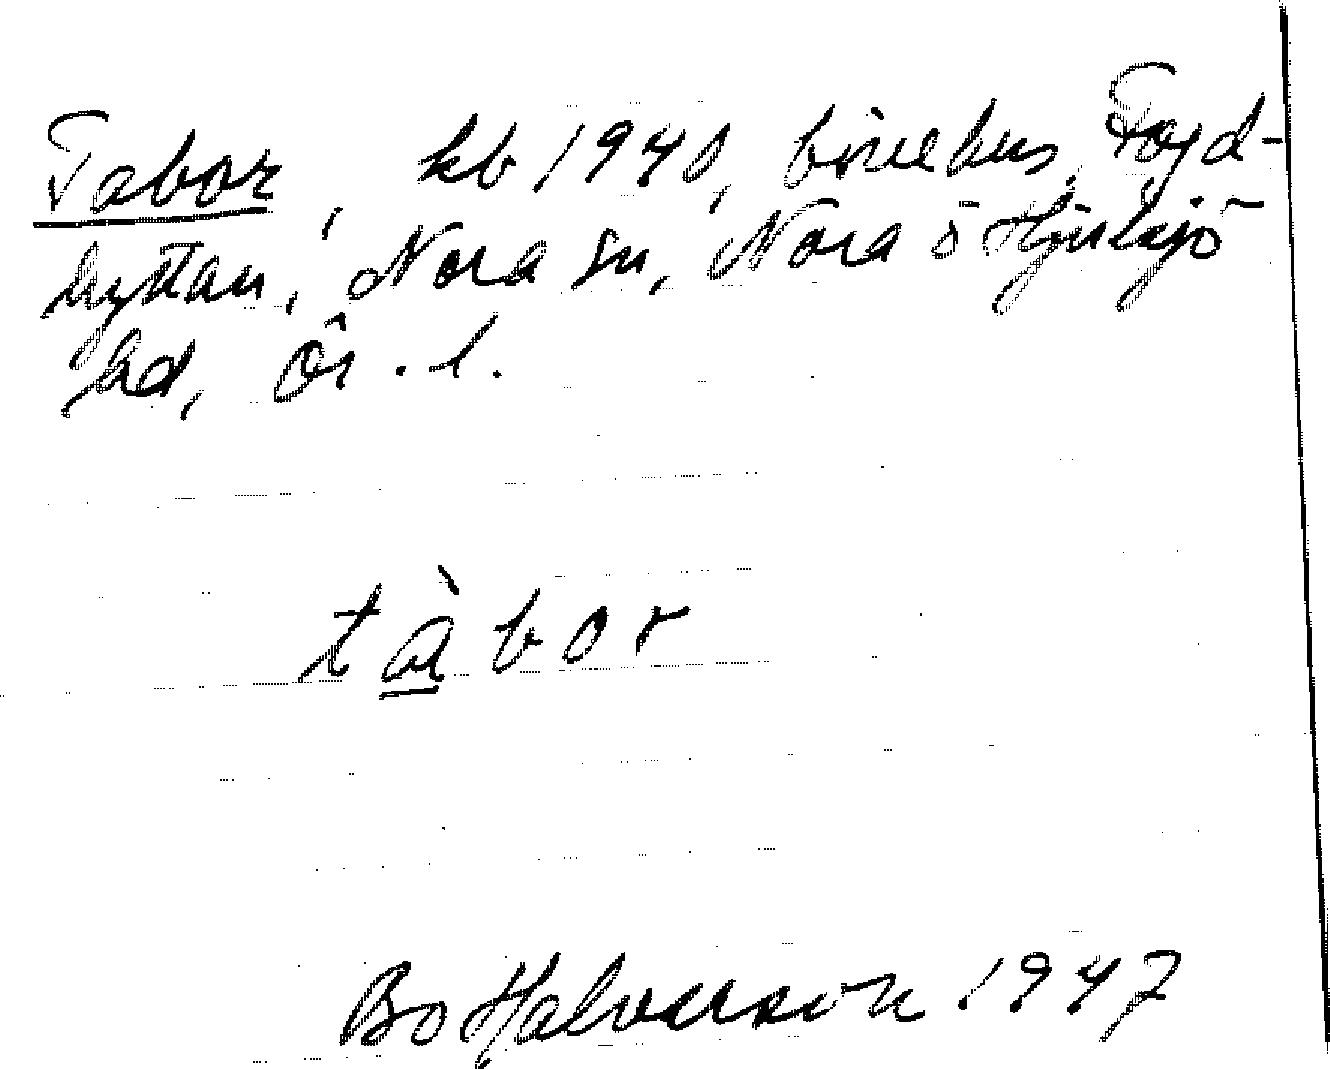 Tabor, kb 1940, bönehus, Fogd-
hyttan, Nora sn, Nora o Hjulsjö
hd, Ör. l.
tàbor
Bo Halvarson 1947